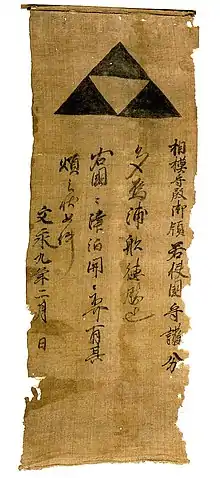 相模守殿御領若狭国守護分
多烏浦船徳勝也
右国々津泊関々不可有其
煩之状如件
文永九年二月 日